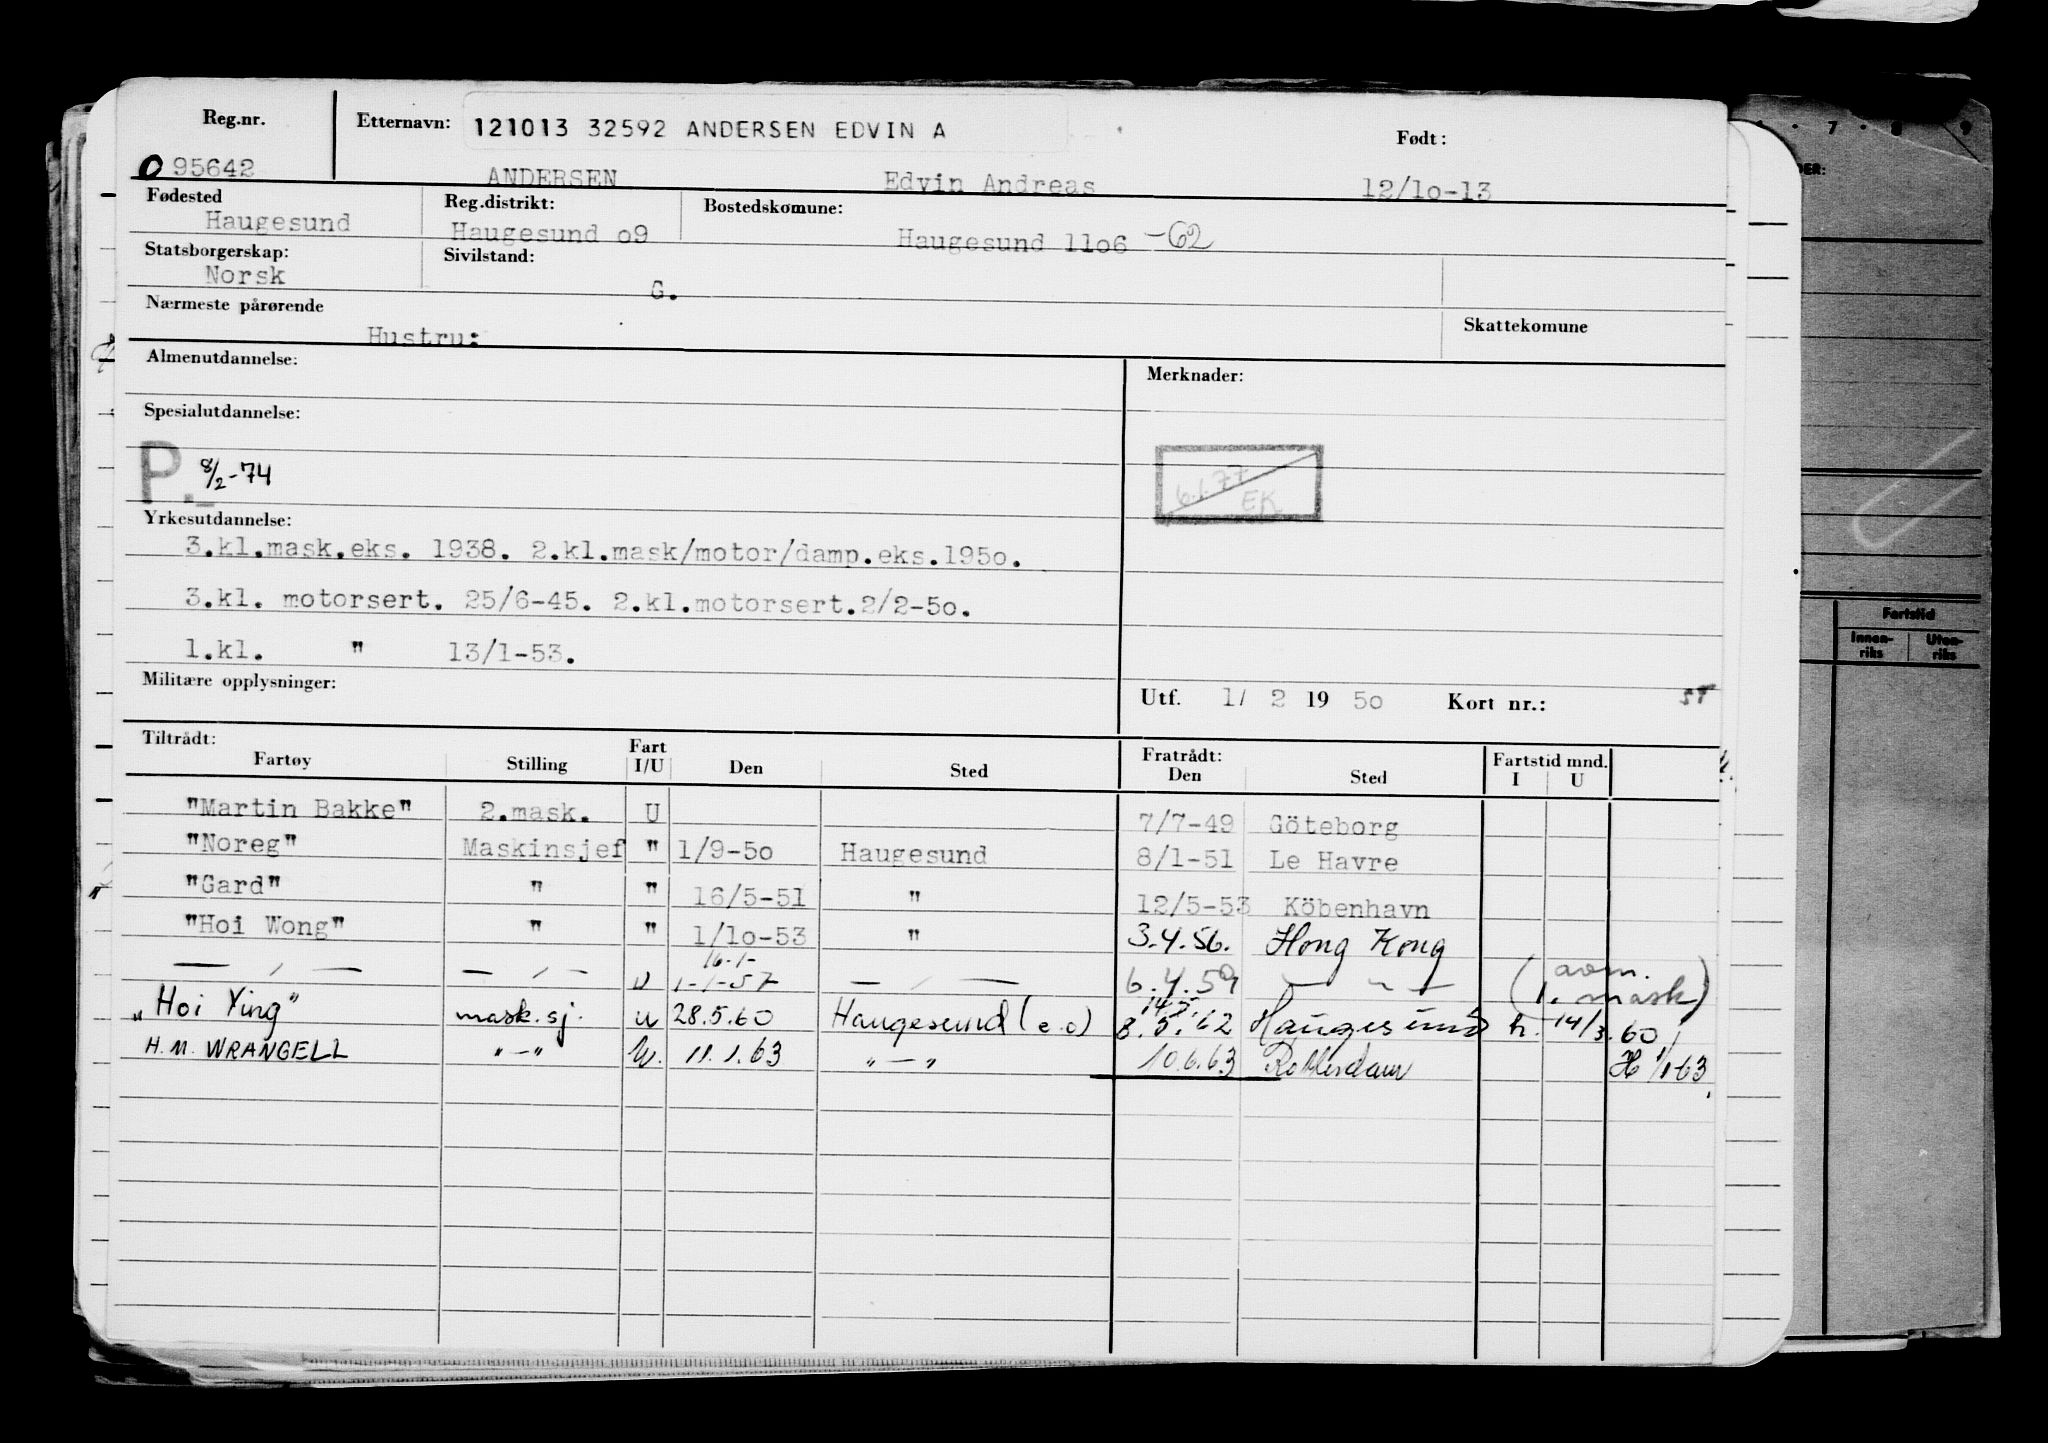 Reg.nr. Etternavn: 121013 32592 ANDERSEN EDVIN A Født:
095642 ANDERSEN Edvin Andreas 12/10-13
Fødested Reg.distrikt: Bostedskomune:
Haugesund Haugesund o9 Haugesund 11o6 -62
Statsborgerskap: Sivilstand:
Norsk G.
Nærmeste pårørende Skattekomune
Hustru:
Almenutdannelse: Merknader:
Spesialutdannelse:
P. 8/2-74 6.1.77
EK
Yrkesutdannelse:
3.kl.mask.eks. 1938. 2.kl.mask/motor/damp.eks.195o.
3.kl. motorsert. 25/6-45. 2.kl.motorsert.2/2-5o.
1.kl. " 13/1-53.
Militære opplysninger: Utf. 1/ 2 19 5o Kort nr.:
Tiltrådt: Fart Fratrådt: Fartstid mnd.
Fartøy Stilling I/U Den Sted Den Sted I U
"Martin Bakke" 2.mask. U 7/7-49 Göteborg
"Noreg" Maskinsjef " 1/9-5o Haugesund 8/1-51 Le Havre
"Gard" " " 16/5-51 " 12/5-53 Köbenhavn
"Hoi Wong" " " 1/1o-53 " 3.4.56. Hong Kong
— , — — , — U 16-1- 1-1-57 — , — 6.4.59 — " — (avm. 1. mask)
"Hoi Ying" mask.sj. u 28.5.60 Haugesund (e.o) 8.5.62 Haugesund h. 14/3.60
H.M. WRANGELL "—" U. 11.1.63 "—" 10.6.63 Rotterdam H 1/1-63
6 · 7 · 8 9
DER:
Fartstid
Innen-riks Uten-riks